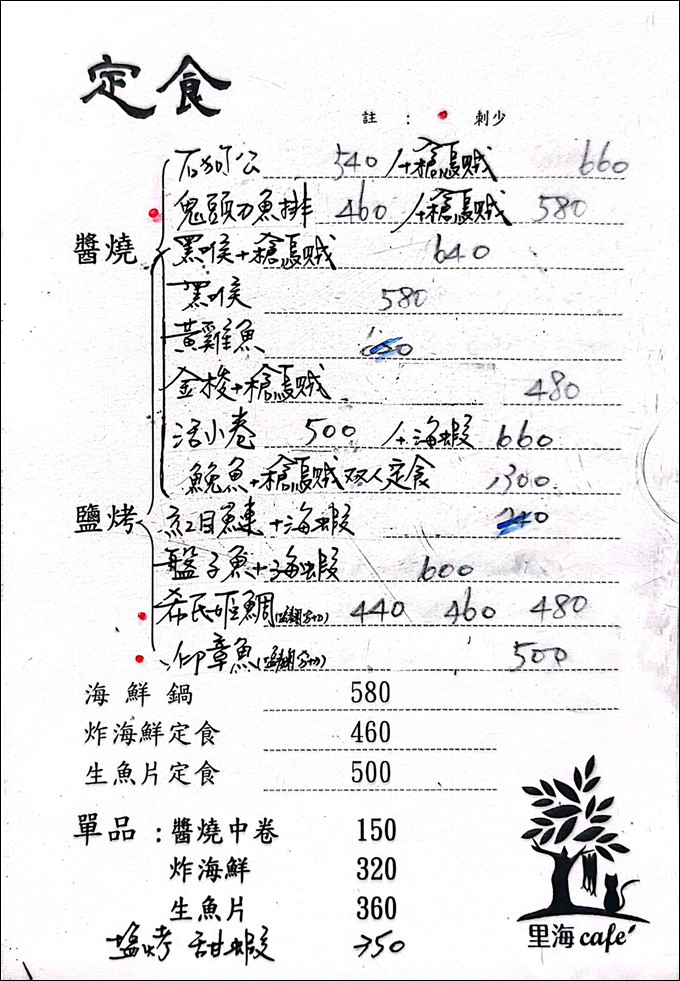 定食
註 : 刺少
石狗公 540 /+槍烏賊 660
鬼頭刀魚排 460 /+槍烏賊 580
醬燒
黑喉+槍烏賊 640
黑喉 580
黃雞魚
金梭+槍烏賊 480
活小卷 500 /+海蝦 660
鮸魚+槍烏賊双人定食 1300
鹽烤
紅目鰱+海蝦
盤子魚+海蝦 600
希氏姬鯛 440 460 480
印章魚 500
海鮮鍋 580
炸海鮮定食 460
生魚片定食 500
單品 : 醬燒中卷 150
炸海鮮 320
生魚片 360
塩烤 甜蝦 350
里海 cafe'